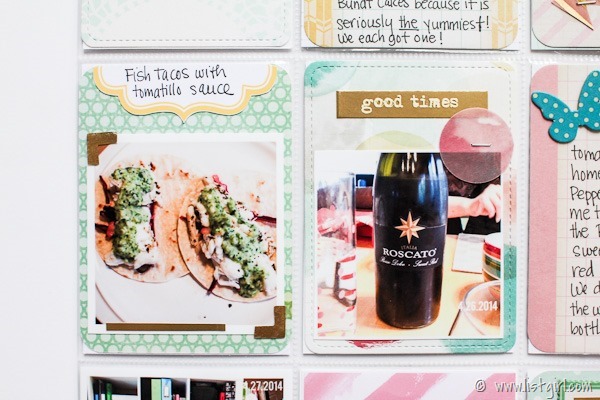 Bundt Cakes because it is
seriously the yummiest!
we each got one!
Fish tacos with
tomatillo sauce
good times
ITALIA
ROSCATO
Rosso Dolce - Sweet Red
4.26.2014
toma
home
Peppe
me t
the P
Swee
red
We d
the w
bottl
4.27.2014
© www.listgirl.com